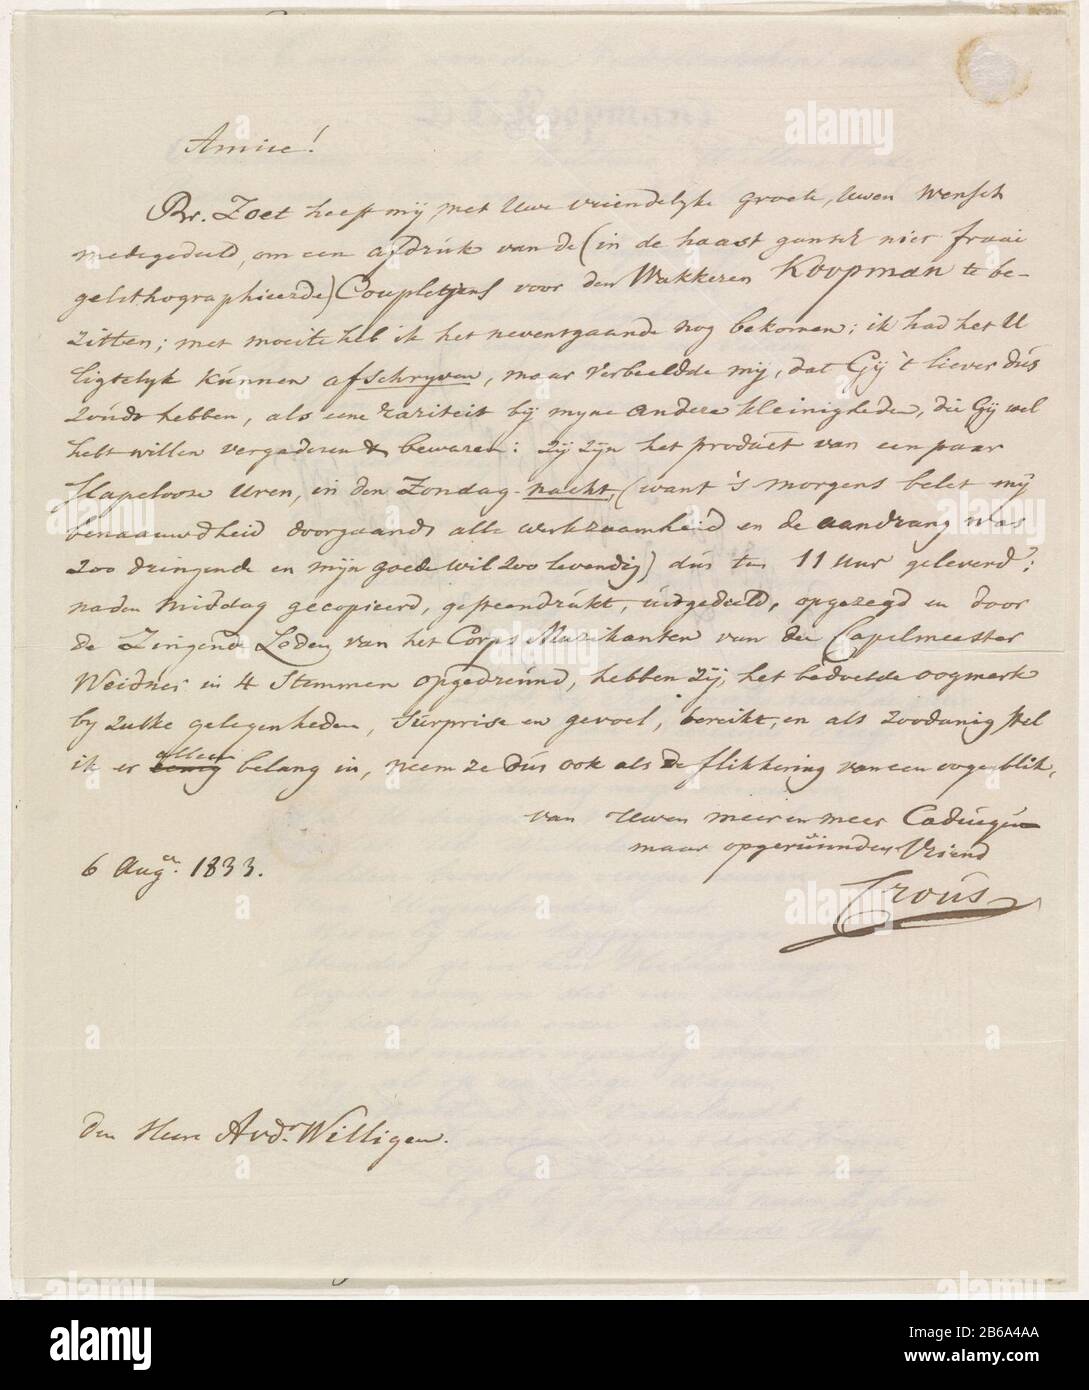 Amice!
Br. Zoet heeft mij met Uwe vriendelyke groete, Uwen wensch
medegedeeld, om een afdrúk van de (in de haast gansch niet fraai
gelithographieerde) Coupletjens voor den Wakkeren Koopman te be-
zitten; met moeite heb ik het nevensgaande nog bekomen; ik had het U
ligtelyk kúnnen afschryven, maar verbeeldde mij, dat Gij 't liever dús
zoúdt hebben, als eene rariteit bij myne andere kleinigheden, die Gij wel
hebt willen vergaderen & bewaren: zij zijn het prodúct van een paar
slapelooze Uren, in den Zondag-nacht, (want 's morgens belet mij
benaauwdheid doorgaands alle werkzaamheid en de aandrang was
zoo dringende en mijn goede wil zoo levendig) dús ten 11 Uur geleverd;
na den middag gecopieerd, gesteendrúkt, úitgedeeld, opgezegd en door
de Zingende Leden van het Corps Muzikanten van den Capelmeester
Weidner in 4 Stemmen opgedreúnd, hebben zij, het bedoelde oogmerk
by zulke gelegenheden, Súrprise en gevoel, bereikt, en als zoodanig stel
ik er alleen eenig belang in, neem ze dús ook als de flikkering van een oogenblik,
van Uwen meer en meer Cadúqúen
maar opgerúimden Vriend
Croús
6 Aug. 1833.
den Heere A vdr Willigen.
alamy
Image ID: 2B6A4AA
www.alamy.com